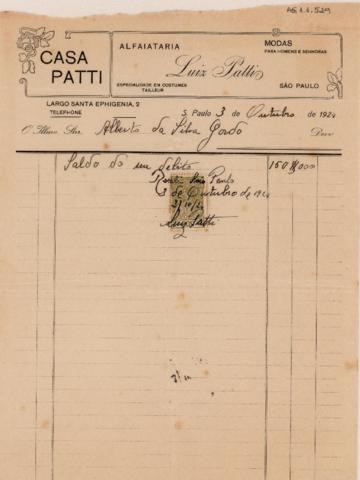 A6.1.1.529
CASA PATTI
ALFAIATARIA
Luiz Patti
ESPECIALIDADE EM COSTUMES TAILLEUR
MODAS
PARA HOMENS E SENHORAS
SÃO PAULO
LARGO SANTA EPHIGENIA, 2
TELEPHONE
S. Paulo 3 de Outubro de 1924
O Illmo. Snr. Alberto da Silva Gordo Deve
Saldo do seu debito 150$000
São Paulo
3 de Outubro de 1924
3/10/24
Luiz Patti